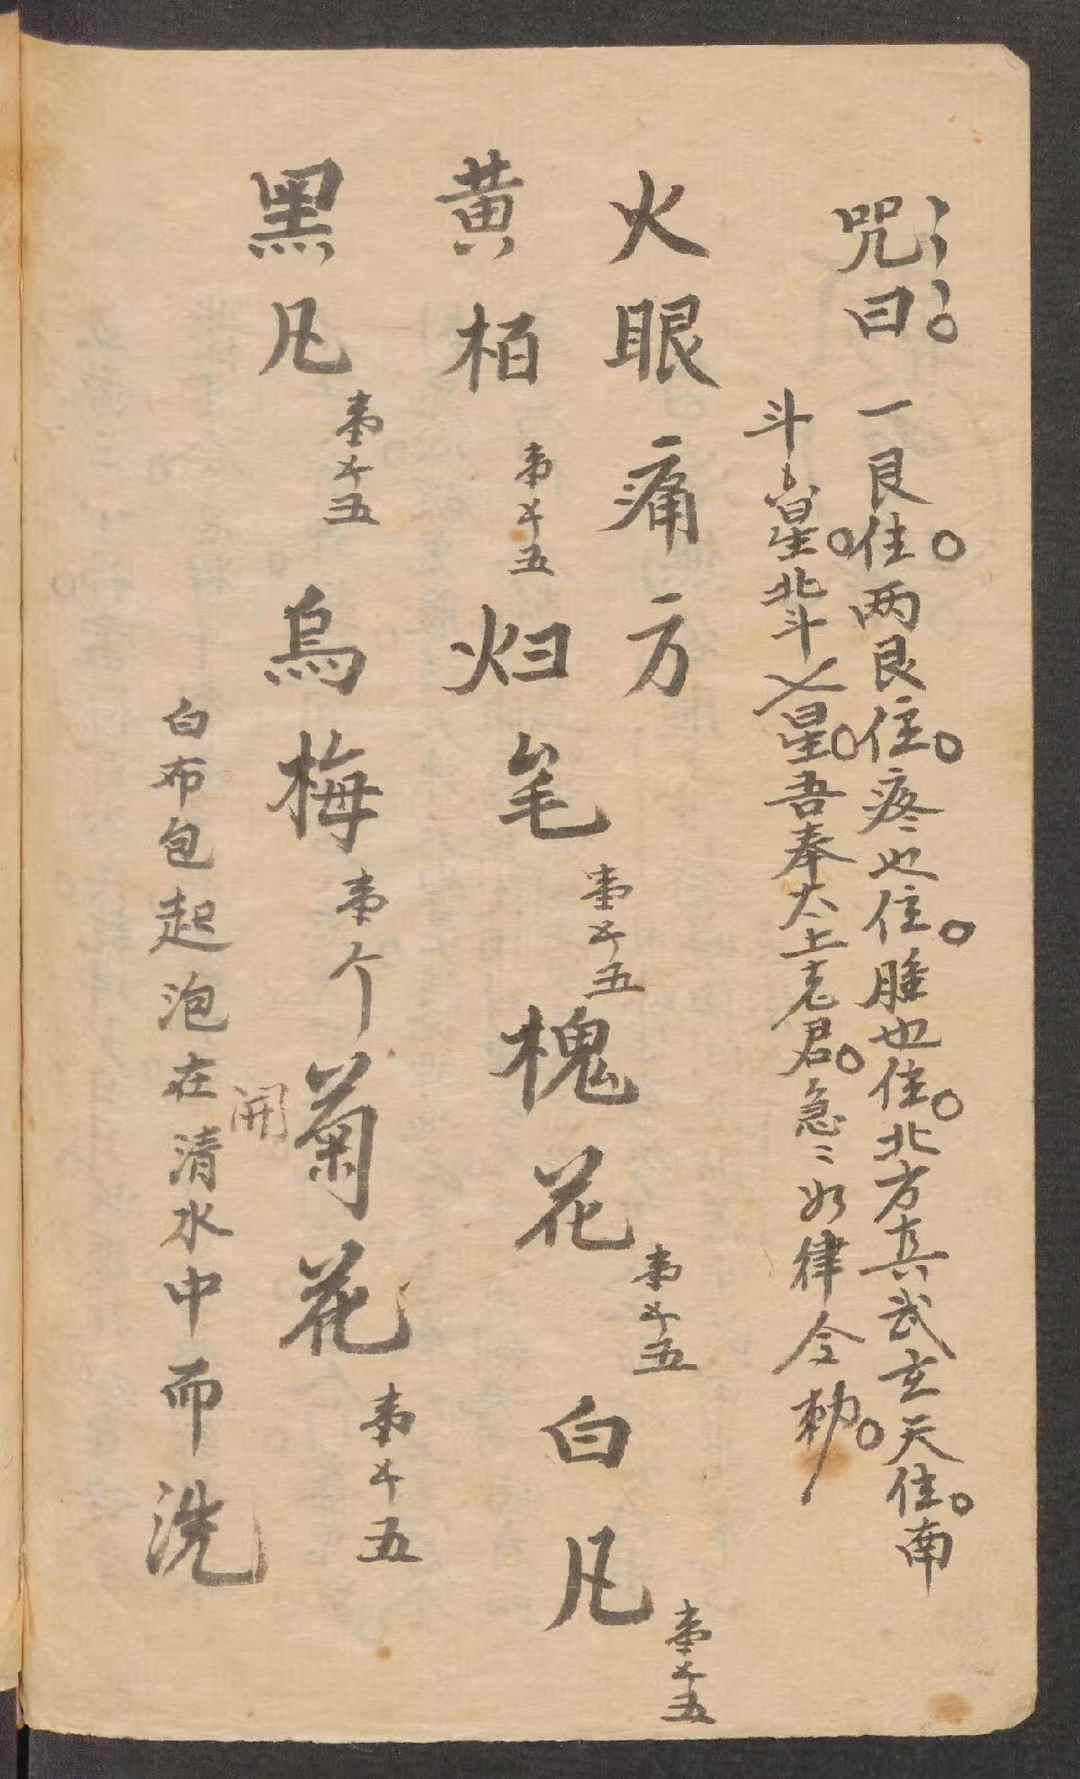 咒曰 一艮住两艮住疼也住腫也住北方真武玄天住南
斗六星北斗七星吾奉太上老君急〻如律令勅
火眼痛方
黄栢 五 五 槐花 五 白凡 五
黑凡 五 烏梅 个 菊花 五
開
白布包起泡在清水中而洗